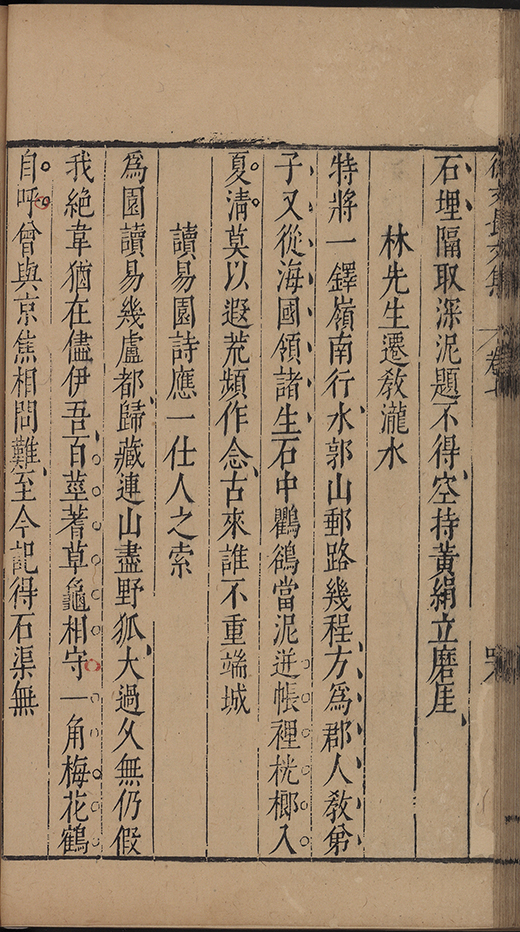 徐文長文集 卷七
石埋隔取深泥題不得空持黃絹立磨厓
林先生遷敎瀧水
特將一鐸嶺南行水郭山郵路幾程方爲郡人敎弟
子又從海國領諸生石中鸜鵒當泥迸帳裡桄榔入
夏淸莫以遐荒頻作念古來誰不重端城
讀易園詩應一仕人之索
爲園讀易幾盧都歸藏連山盡野狐大過久無仍假
我絕韋猶在儘伊吾百莖蓍草龜相守一角梅花鶴
自呼曾與京焦相問難至今記得石渠無